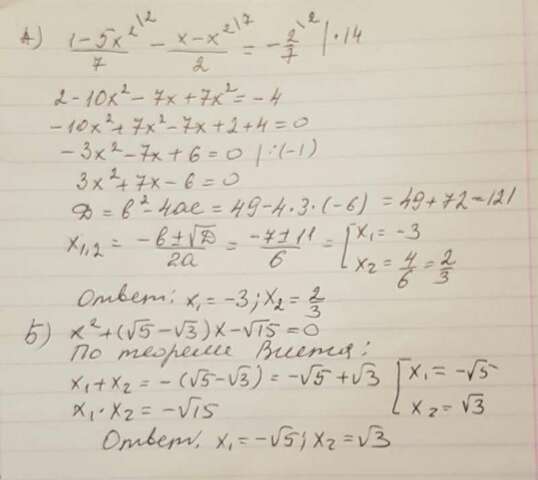 А) (1-5x²^\2)/7 - (x-x²^\7)/2 = -2^\2/7 | ·14
2-10x²-7x+7x²=-4
-10x²+7x²-7x+2+4=0
-3x²-7x+6=0 | :(-1)
3x²+7x-6=0
D=b²-4ac=49-4·3·(-6)=49+72=121
x₁,₂ = (-b±√D)/2a = (-7±11)/6 = [x₁=-3
x₂=4/6=2/3
Ответ: x₁=-3; x₂=2/3
Б) x²+(√5-√3)x-√15=0
По теореме Виета:
x₁+x₂=-(√5-√3)=-√5+√3 [x₁=-√5
x₁·x₂=-√15 x₂=√3
Ответ. x₁=-√5; x₂=√3